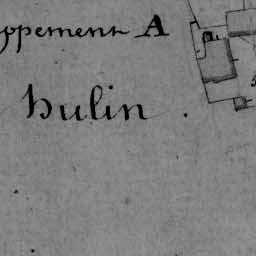 ppement A
hulin .